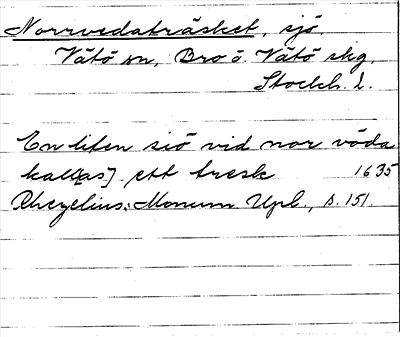 Norrvedaträsket, sjö.
Vätö sn, Bro o. Vätö skg,
Stockh. l.
En liten siö vid nor vöda
kall[as] ett tresk 1635
Rhezelius: Monum Upl., s. 151.